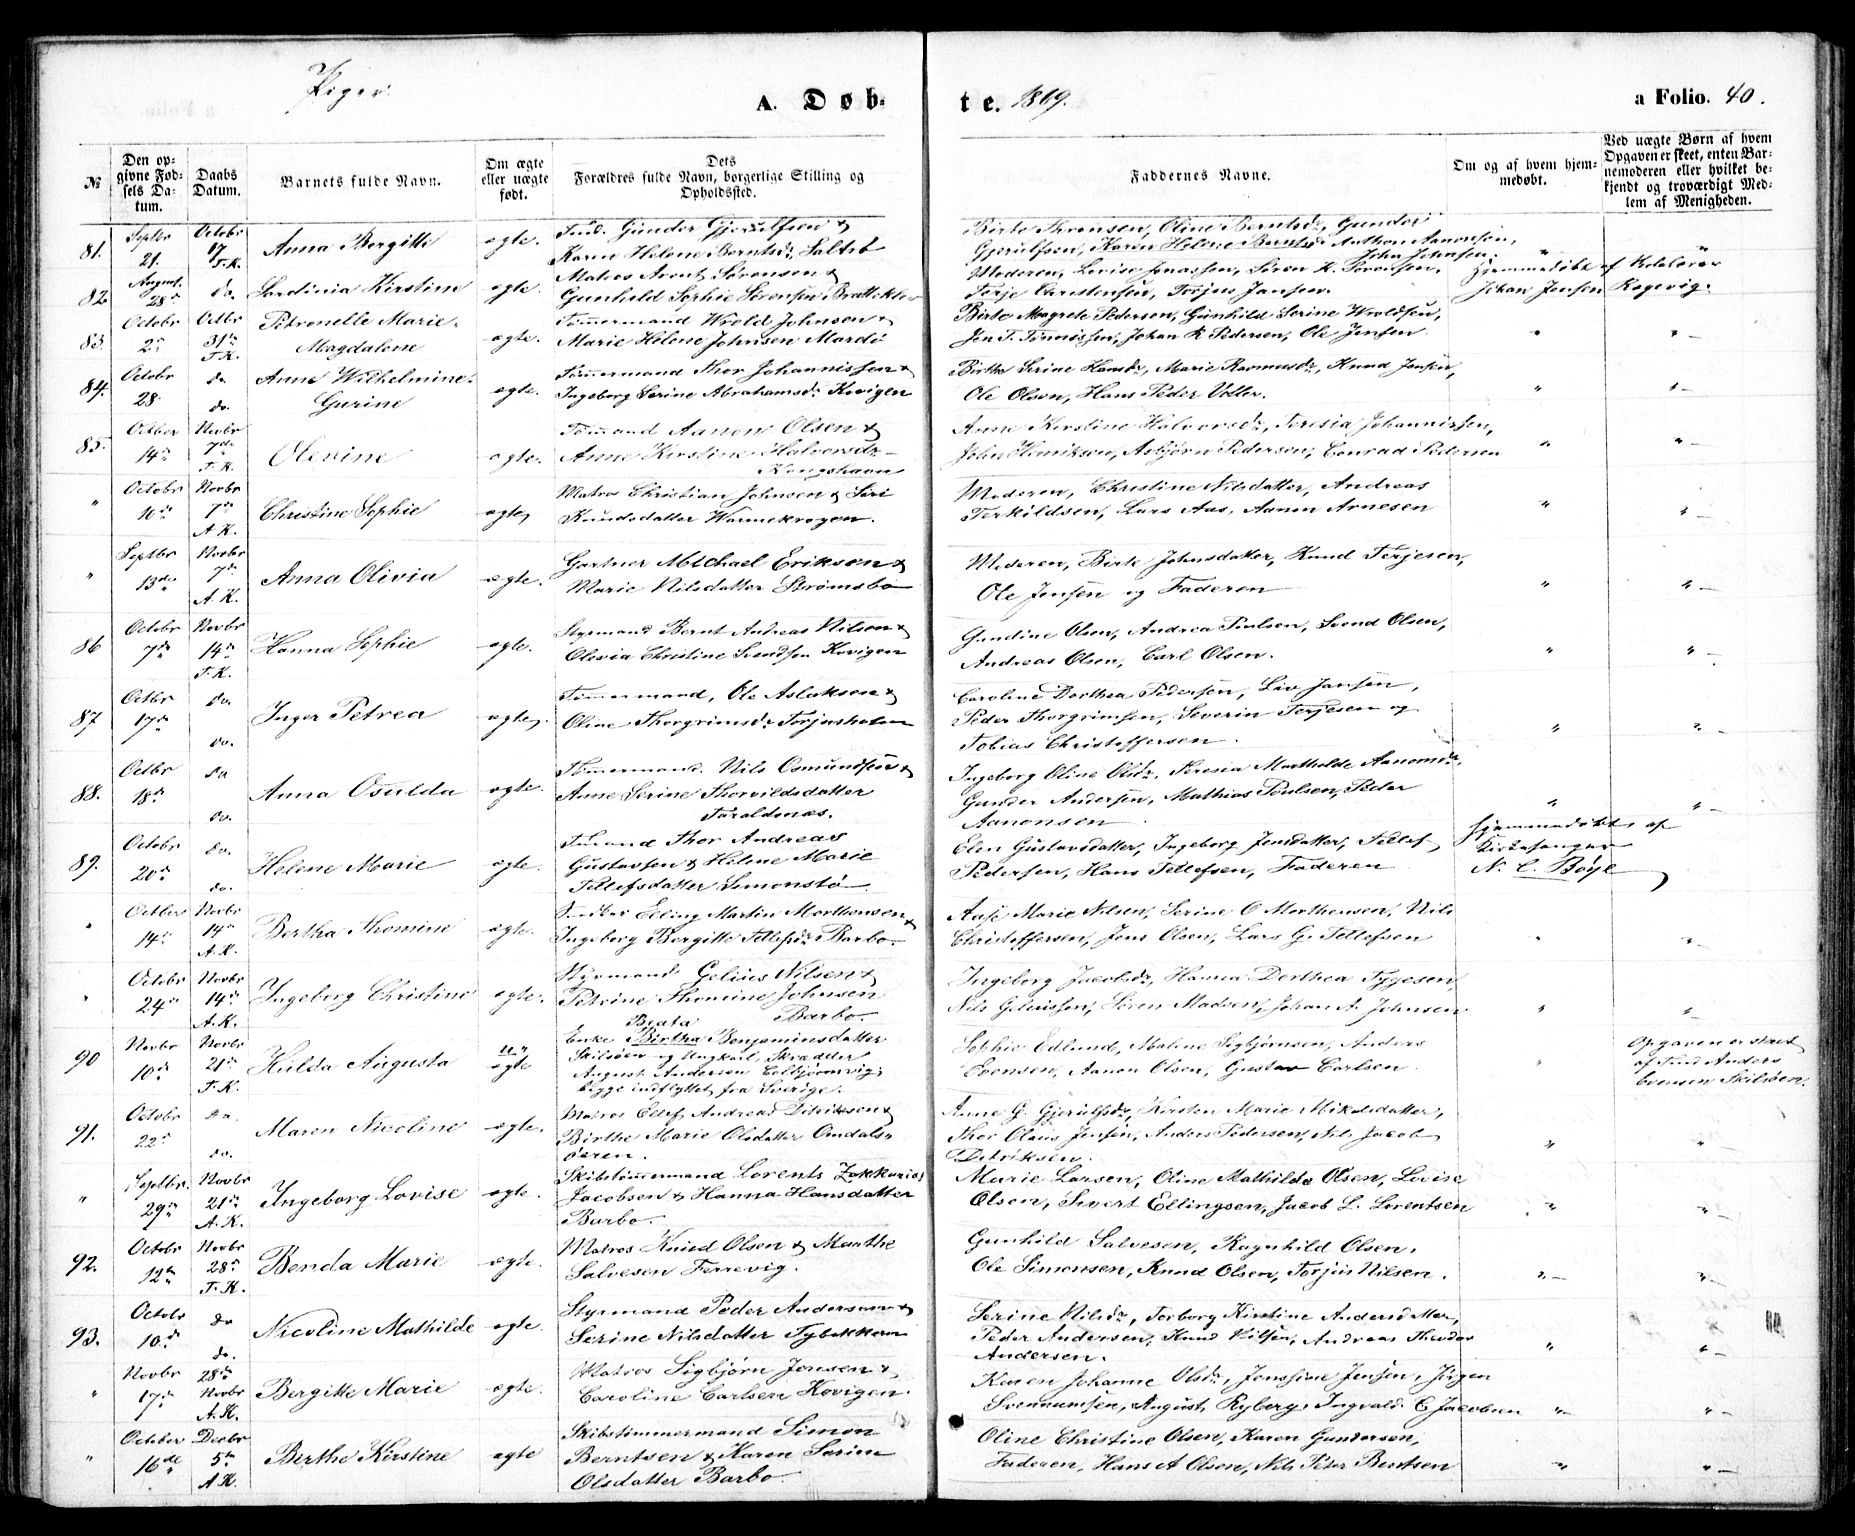 Piger.
A. Døb-
te. 1869.
a Folio. 40.
№
Den op-
givne Fød-
sels Da-
tum.
Daabs
Datum.
Barnets fulde Navn.
Om ægte
eller uægte
født.
Dets
Forældres fulde Navn, borgerlige Stilling og
Opholdssted.
Faddernes Navne.
Om og af hvem hjem-
medøbt.
Ved uægte Børn af hvem
Opgaven er skeet, enten Bar-
nemoderen eller hvilket be-
kjendt og troværdigt Med-
lem af Menigheden.
81. Septbr 21. Octobr 17 T.K. Anna Bergitte ægte.
Gunder Gjerulfsen &
Karen Helene Berntsd:
Birte Thronsen, Oline Berntsdr, Gunder
Gjerulfsen, Karen Helene Berntsd: Anthon Aanonsen,
John Johnsen.
82 August 28de do. Kirstine ægte.
Matros Arent Sørensen &
Gunhild Sophie Sørensen Bratteklev
Moderen, Lovise Jonassen, Søren K. Sørensen,
Terje Christensen, Torjus Jansen.
Hjemmedøbt af
Johan Jensen Kogevig.
83. Octobr 2de Octbr 31te T.K. Petronelle Marie
Magdalene ægte.
Tømmermand Wrold Johnsen &
Marie Helene Johnsen Mardø
Birte Magrete Pedersen, Gunhild Serine Wroldsen,
Jen T. Tønnissen, Johan R Pedersen, Ole Jensen
84. Octobr 28 do do. Anne Wilhelmine
Gurine ægte.
Tømmermand Thor Johannissen &
Ingeborg Serine Abrahamsd: Kovigen
Birthe Serine Hansdr, Marie Rasmusdr, Knud Jensen,
Ole Olsen, Hans Peder
85. October 14de Novbr 7de T.K. Olevine ægte.
Aanon Olsen &
Anne Kirstine Halvorsdr
Kongshavn
Anne Kirstine Halvorsdr, Teresia Johannissen,
John Henriksen, Asbjørn Pedersen, Conrad Pedersen
" Octobr 16de Novbr 7de A.K. Christine Sophie ægte,
Matros Christian Johnsen & Siri
Knudsdatter Warmekrogen.
Moderen, Christine Nilsdatter, Andreas
Terkildsen, Lars Aas, Aanon Arnesen
" Septbr 13de Novbr 7de A.K. Anna Olivia ægte.
Gartner Michael Eriksen &
Marie Nilsdatter Strømsbo
Moderen, Birte Johnsdatter, Knud Terjesen,
Ole Jensen og Faderen
86 Octobr 7de Novbr 14de T.K. Hanna Sophie ægte.
Styrmand Bernt Andreas Nilsen &
Olevia Christine Svendsen Kovigen
Gundine Olsen, Andrea Poulsen, Svend Olsen,
Andreas Olsen, Carl Olsen.
87 Octbr 17de do. do. Inger Petrea ægte,
Tømmermand, Ole Aslaksen &
Oline Thorgrimsdr Torjusholm
Caroline Dorthea Pedersen, Liv Jansen,
Peder Thorgrimsen, Severin Terjesen og
Tobias Christoffersen.
88. Octbr 18de do do. Anna Osulda ægte.
Tømmermand. Nils Osmundsen &
Anne Serine Thorvildsdatter
Taraldsnæs.
Ingeborg Oline Olsdr, Teresia Mathilde Aanonsdr,
Gunder Andersen, Mathias Poulsen, Peder
Aanonsen
89. Octobr 20de do. do. Helene Marie ægte.
Thor Andreas
Gustavsen & Helene Marie
Tellefsdatter Simonstø
Elen Gustavsdatter, Ingeborg Jensdatter, Tellef
Pedersen, Hans Tellefsen, Faderen
Hjemmedøbt, af
Kirkesanger
N. C. Bøye
" October 14de Novbr 14de A.K. Bertha Thomine ægte.
Elling Martin Morthensen &
Ingeborg Bergitte Tellefsdr Barbo.
Aase Marie Nilsen, Serine O Morthensen, Nils
Christoffersen, Jens Olsen, Lars G. Tellefsen
" Octobr 24de Novbr 14de A.K. Ingeborg Christine ægte.
Styrmand Gelius Nilsen &
Petrine Thomine Johnsen
Barbo.
Ingeborg Jacobsdr, Hanna Dorthea Tygesen,
Nils Geliussen, Søren Madsen, Johan A. Johnsen
90 Novbr 10de Novbr 21de T.K. Hulda Augusta u-
ægte
Beata
Enke Birtha Benjaminsdatter
Skilsøen og Ungkarl, Skrædder
August Andersen
begge indflyttet fra Sverige.
Sophie Edlund, Maline Sigbjørnsen, Anders
Evensen, Aanon Olsen, Gustav Carlsen
Opgaven er skeet
af Anders
Evensen Skilsøen,
91. Octobr 22de do. do. Maren Nicoline ægte.
Matros Ellef Andreas Ditriksen &
Birthe Marie Olsdatter Omdals-
øeren.
Anne G. Gjerulfsdr, Kirsten Marie Mikelsdatter,
Thor Olaus Jensen, Anders Pedersen, Nils Jacob
Ditriksen.
" Septbr. 29de Novbr 21de A.K. Ingeborg Lovise ægte.
Skibstømmermand Lorents Zakkarias
Jacobsen & Hanna Hansdatter
Barbo.
Marie Larsen, Oline Mathilde Olsen, Lovise
Olsen, Sivert Ellingsen, Jacob L. Lorentsen
92. Octobr 12te Novbr 28de T.K. Benda Marie ægte.
Matros Knud Olsen & Marthe
Salvesen Terrevig.
Gunhild Salvesen, Ragnhild Olsen,
Ole Simonsen, Knud Olsen, Torjus Nilsen.
93. Octobr 10de do do. Nicoline Mathilde ægte.
Styrmand Peder Andersen &
Serine Nilsdatter Tybakken
Serine Nilsdr, Torborg Kirstine Andersdatter,
Peder Andersen, Knud Nilsen, Andreas Theodor
Andersen.
" Novbr 17de 28de Novbr A.K. Bergitte Marie ægte.
Matros Sigbjørn Jensen &
Caroline Carlsen Kovigen.
Karen Johanne Olsdr, Jensine Jensen, Jørgen
Svennumsen, August Ryberg, Ingvald C Jacobsen
" October 16de Decbr 5te A.K. Berthe Kirstine ægte
Skibstimmermand Simon
Berntsen & Karen Serine
Olsdatter Barbo.
Oline Christine Olsen, Karen Gundersen,
Faderen, Hans A Olsen, Nils Peter Bentsen